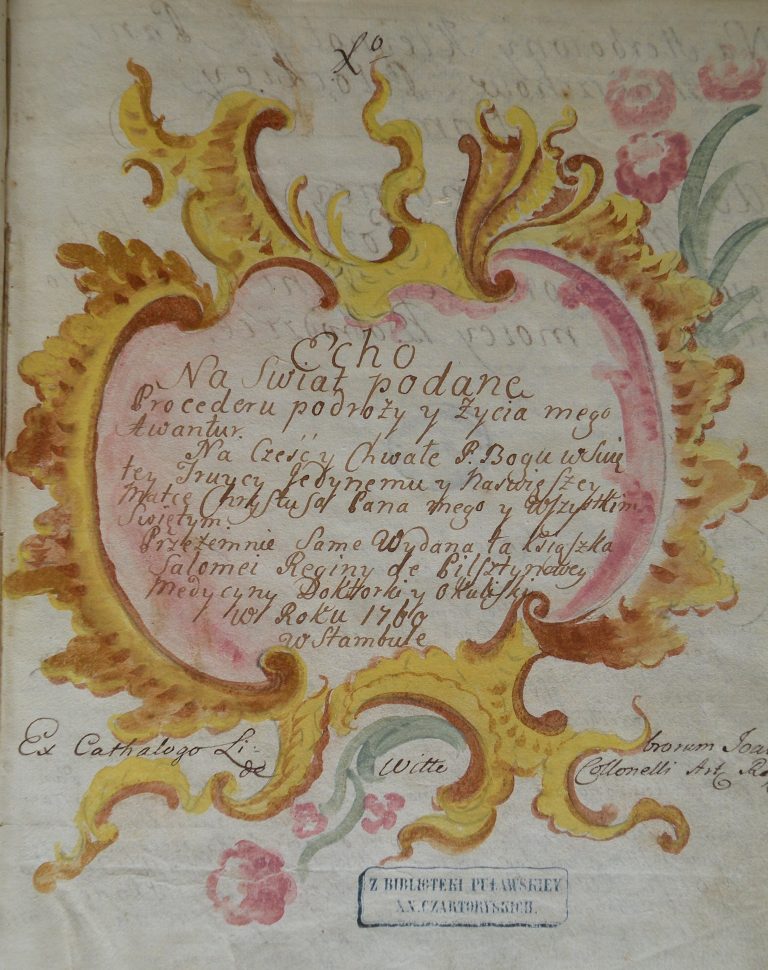 Lo
Echo
Na Swiat podane
Procederu podroży y Życia mego
Awantur.
Na Cześć y Chwałe P. Bogu w Swię
tey Truycy Jedynemu y Naswięszey
Matce Chrystusa Pana mego y Wszystkim
Swiętym.
Przezemnie Same Wydana ta Ksiąszka
Salomei Reginy de Pilsztynowey
Medycyny Doktorki y Okulistki
w Roku 1760
w Stambule
Ex Cathalogo Li- brorum Joa
de Witte Collonelli Art. Re
Z BIBLIOTEKI PUŁAWSKIEY
XX. CZARTORYSKICH.